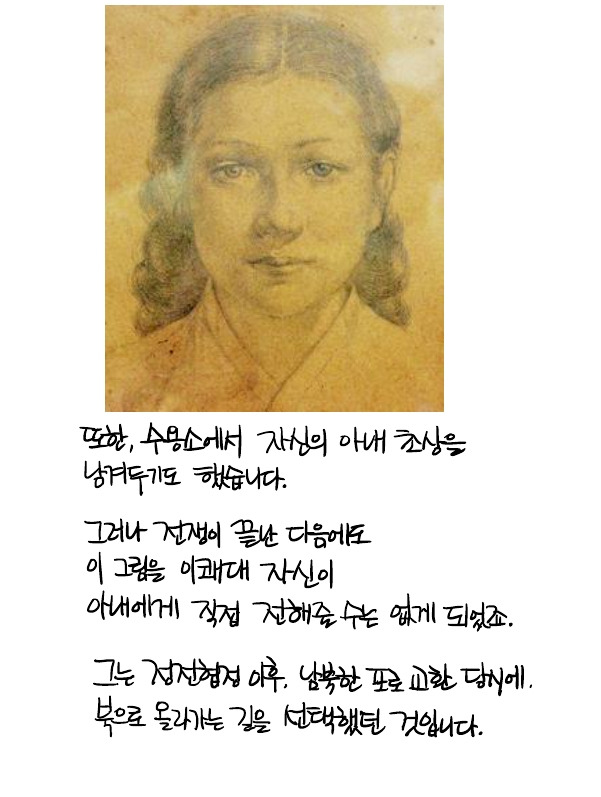 또한, 수용소에서 자신의 아내 초상을
남겨두기도 했습니다.
그러나 전쟁이 끝난 다음에도
이 그림을 이쾌대 자신이
아내에게 직접 전해줄 수는 없게 되었죠.
그는 정전협정 이후, 남북한 포로 교환 당시에,
북으로 올라가는 길을 선택했던 것입니다.